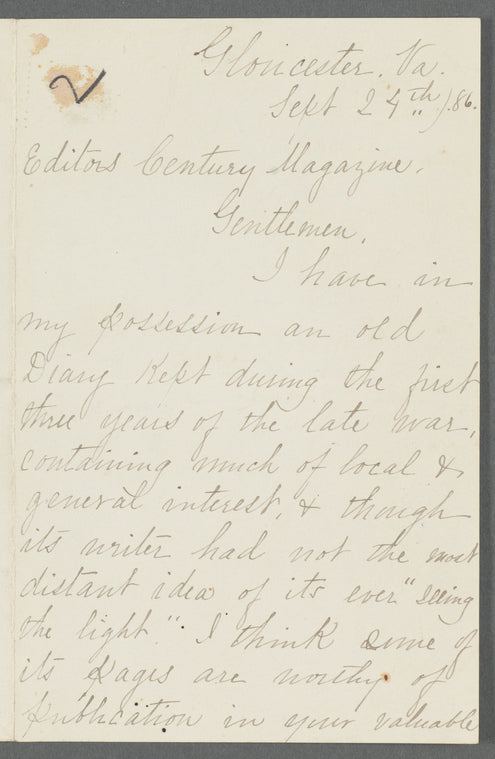 2
Gloucester, Va.
Sept 24th /86.
Editors Century Magazine.
Gentlemen,
I have in
my possession an old
Diary Kept during the first
three years of the late war,
containing much of local &
general interest, & though
its writer had not the most
distant idea of its ever "seeing
the light". I think some of
its pages are worthy of
publication in your valuable